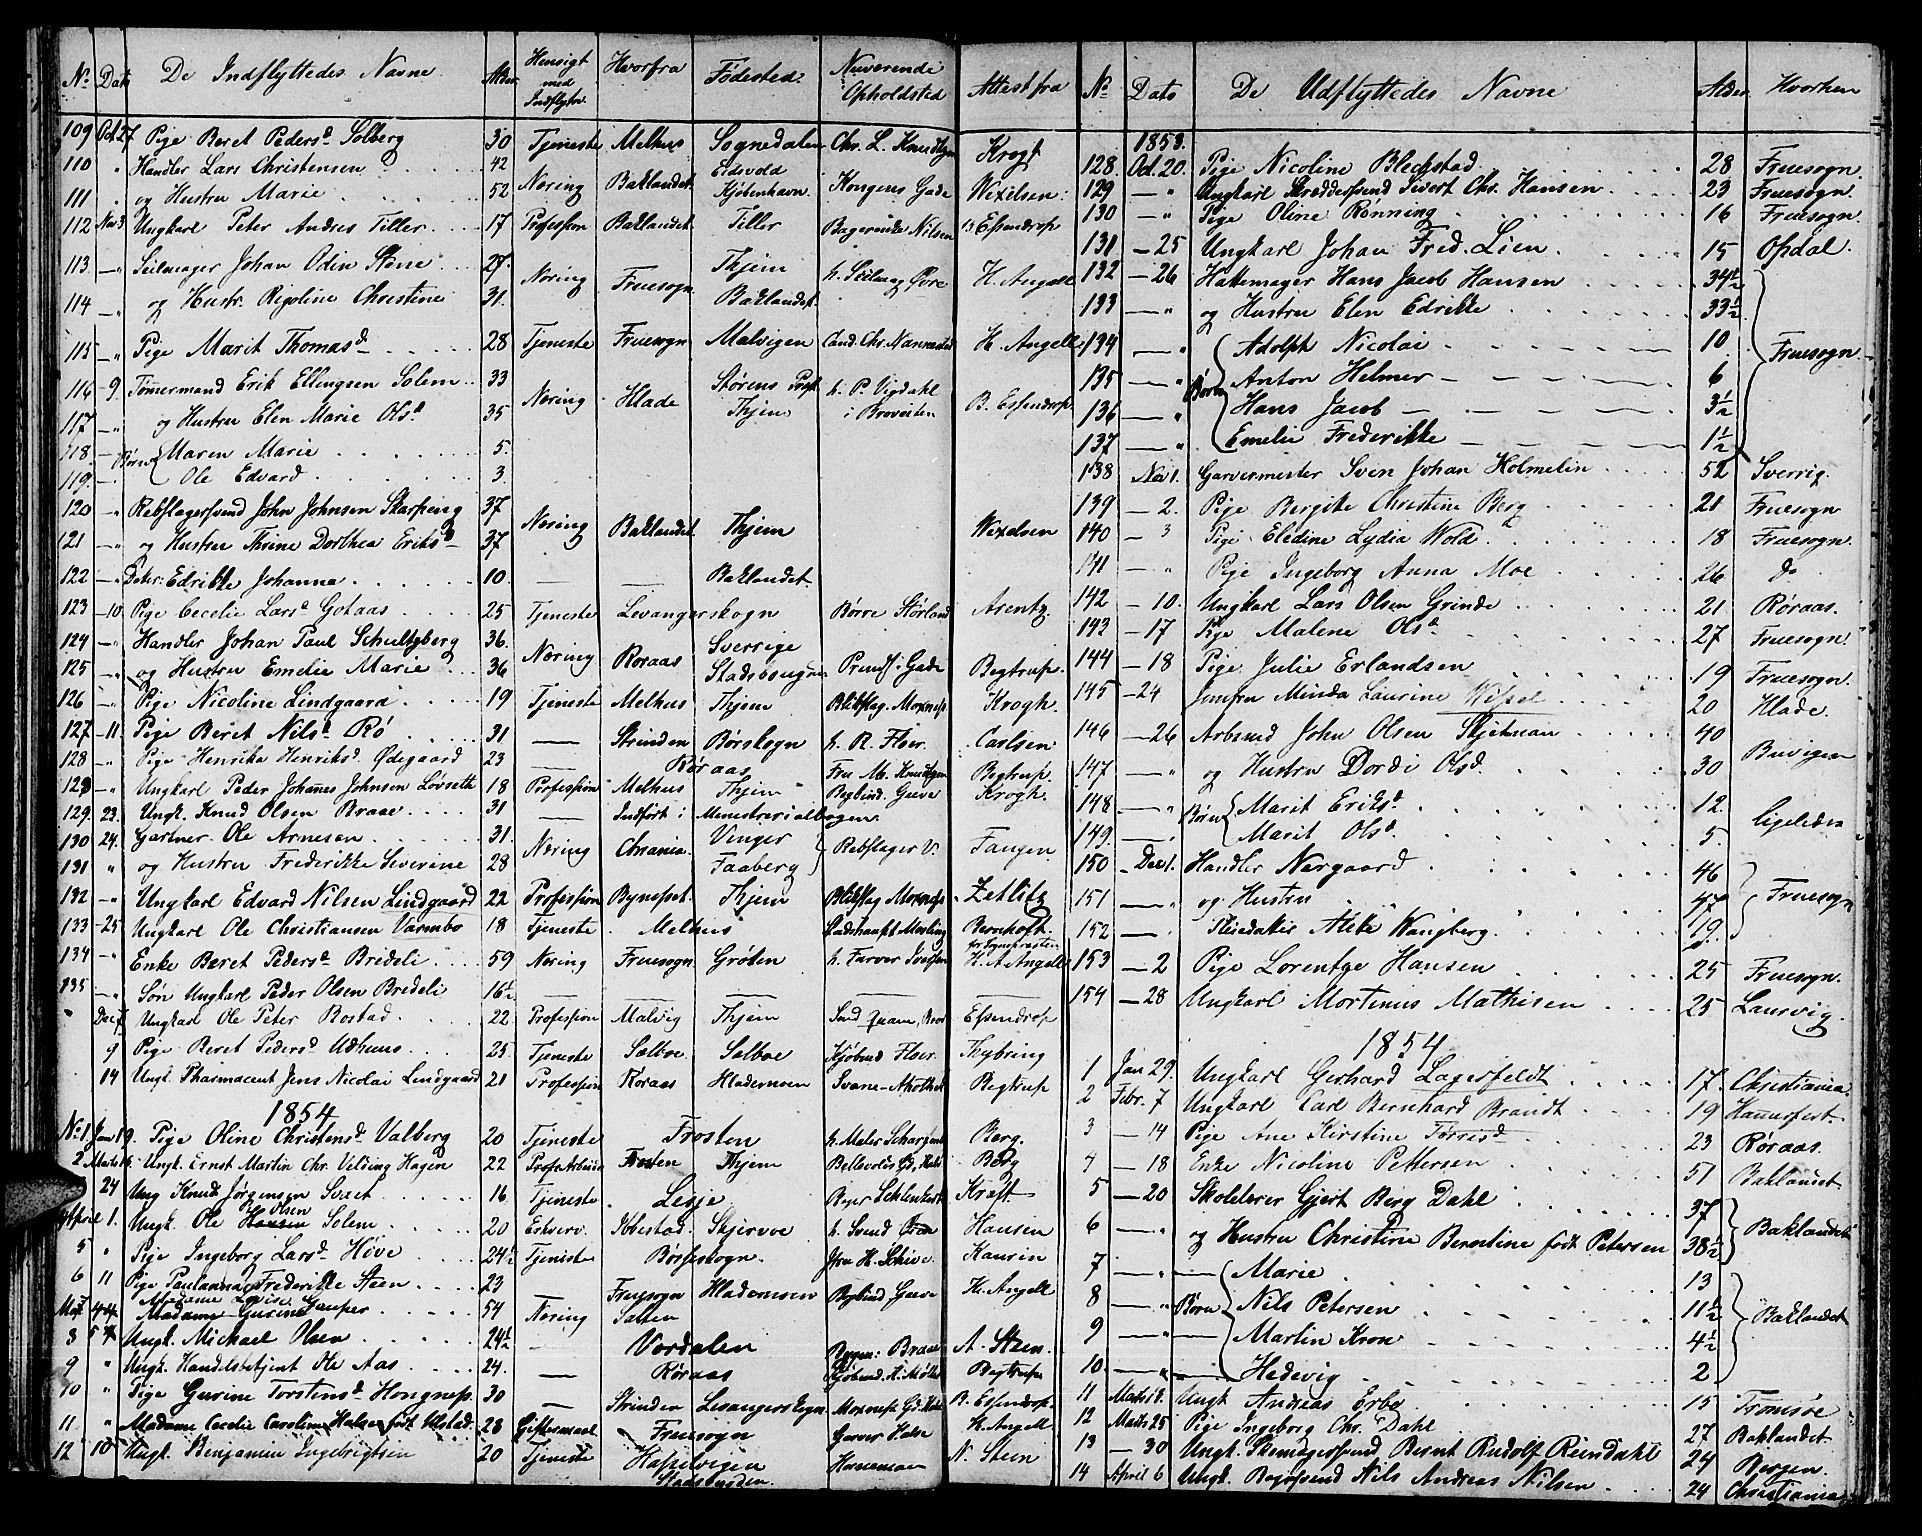 No Dat De Indflyttedes Navne. Alder Hensigt med Indflytn. Hvorfra Fødested Nuværende Opholdsted Attest fra
109 Oct 27 Pige Beret Pedersd. Solberg 30 Tjeneste Melhus Sognedalen Chr. L. Knudtzon Krogh
110 " Handler Lars Christensen 42 Næring Baklandet Eidsvold Kongens Gade Wexelsen
111 " og Hustru Marie 52 Kjøbenhavn
112 Nov 3 Ungkarl Peter Andres Tiller 17 Profession Baklandet Tiller Bagersvend Nilsen B Essendrop
113 — " Seilmager Johan Odin Stene 27 Næring Fruesogn Thjem h. Seilmag Øvre H. Angell
114 — " og Hustr. Regoline Christine 31. Baklandet
115 — " Pige Marit Thomasd. 28 Tjeneste Fruesogn Malvigen Cand. Chr. Nannestad H. Angell
116 — 9 Tømmermand Erik Ellingsen Solem 33 Næring Hlade Størens Prest. h. P. Vigdahl B. Essendrop
117 — " og Hustru Elen Marie Olsd. 35 Thjem i Brøveiten
118 — Børn Maren Marie 5.
119 — Ole Edvard 3.
120 — " Rebslagersvend John Johnsen Skarpeng 37 Næring Baklandet Thjem Wexelsen
121 — " og Hustru Trine Dorthea Eriksd. 37
122 — " Datter: Edrikke Johanna 10. — — Baklandet
123 — 10 Pige Cecelie Larsd. Gotaas 25 Tjeneste Levangerskogn Børre Størland Arentz
124 — " Handler Johan Paul Schultzberg 36. Næring Roraas Sverrige Prinds: Gade Begtrup.
125 — og Hustru Emelie Marie 36 Stadsbøygden
126 — " Pige Nicoline Lindgaard 19 Tjeneste Melhus Thjem Blikslag. Moxness Krogh.
127 — 11. Pige Beret Nilsd. Rø 31 — Strinden Børskogn h. R. Floer. Carlsen
128 — " Pige Henrika Henriksd. Ødegaard 23 — Røraas Fru M. Knudtzon Begtrup.
129 — " Ungkarl Peder Johannes Johnsen Løvseth 18 Profession Melhus Thjem Bogbind. Greve Krogh.
129. 23. Ungk. Knud Olsen Braae 31 — Indført i Menesterialbogen
130 24. Gartner Ole Arnesen 31. Næring Chriania. Venger Rebslager V. Fangen.
131 " og Hustru Frederikke Severine 28 Faaberg
132 — " Ungkarl Edvard Nilsen Lindgaard 22 Profession Bynesset Thjem Blikslag Moxness Zetlitz
133 — 25 Ungkarl Ole Christiansen Varmbo 18 Tjeneste Melhus Stadshaupt Morling Bernhoft.
134 — " Enke Beret Pedersd. Bredeli 59 Næring Fruesogn Grøten h. Farver Ivertsen H. A. Angell
135 — " Søn Ungkarl Peder Olsen Bredeli 16½ — — — —
Dec 7 Ungkarl Ole Peter Bostad 22 Profession Malvig Thjem Snd Quam, Essendrop
9 Pige Beret Pedersd. Udhuus 25. Tjeneste Sælboe Sælboe Kjøbmd Floer. Thybring
14 Ungk. Pharmacent Jens Nicolai Lindgaard 21 Profession Roraas Hlademoen Svane-Apothek Begtrup
1854
No 1. Jan 19. Pige Oline Christensd. Valberg 20 Tjeneste Frosten h. Maler Berg.
2 Marts 16. Ungk. Ernst Martin Chr. Velding Hagen 22 Frosten Thjem Berg
24 Ung Knud Jørgensen Svaet 16 Tjeneste Lesje Kraft
April 1. Ungk. Ole Hansen Olsen Solem 20 Erhverv. Ibbestad. Skjervøe h. Svend Hansen
5 " Pige Ingeborg Larsd. Høve 24½ Tjeniste Børseskogn. Jfru H. Schive Kaurin
6 11 Pige Paulanna Frederikke Steen 23 Fruesogn Hlademoen Bogbind Greve H. Angell
Madame Gurine Madame Lovise Gauper 54 Næring Salten
8 Ungk. Michael Olsen 24½ — Værdalen A. Steen.
9 " Ungk. Handelsbetjent Ole Aas 24. — Røraas Kjøbmd. Møller Begtrup
10 " Pige Gurine Torstensd. Hongness. 30 — Strinden Levangerskogn Moxness Gd. B. Essendrop.
11 " Madame Cecelie Caroline Halse født 28 Giftermaal Fruesogn Garver Halse H. Angell
12 10 Ungk. Benjamin Ingebrigtsen 20 Tjeneste Hasselvigen Stadsbygden. Hanemoen N. Steen
No Dato De Udflyttedes Navne Alder Hvorhen
1853.
128. Oct. 20. Pige Nicoline Blechstad 28 Fruesogn.
129 — " Ungkarl Skreddersvend Sivert Chr. Hansen 23 Fruesogn.
130 — " Pige Oline Rønning 16 Fruesogn.
131 — 25 Ungkarl Johan Fred. Lien 15 Opdal.
132 — 26 Hattemager Hans Jacob Hansen 34½
133 — " og Hustru Elen Edrikke 33½
134 — " Adolph Nicolai 10 Fruesogn
135 — " Børn Anton Helmer 6
136 — " Hans Jacob 3½
137 — " Emelie Frederikke 1½
138 Nov 1. Garvermester Sven Johan Holmelin 52 Sverrig.
139 — 2. Pige Bergite Christine Berg 21 Fruesogn
140 — 3 Pige Eledine Lydia Wold 18 Fruesogn.
141 — " Pige Ingeborg Anna Moe 26 do
142 — 10. Ungkarl Lars Olsen Grinde 21 Røraas.
143 — 17 Pige Malene Olsd. 27 Fruesogn.
144 — 18 Pige Julie Erlandsen 19 Fruesogn.
145 — 24 Jomfru Minda Laurine Wessel 20 Hlade.
146 — 26 Arbsmd John Olsen Skjetnan 40 Buvigen
147 — " og Hustru Dordi Olsd. 30
148 — " Børn Marit Eriksd. 12. ligeledes
149. — Marit Olsd. 5.
150 — Dec 1. Handler Nørgaard 46
151 — " og Hustru 47 Fruesogn
152 — Pleiedatter Aleke Wangberg. 19
153 — 2 Pige Lorentze Hansen 25 Fruesogn.
154 — 28 Ungkarl Mortinus Mathisen 25 Laurvig.
1854
1 Jan 29. Ungkarl Gerhard Lagesfeldt 17. Christiania.
2 Febr. 7 Ungkarl Carl Bernhard Brandt 19 Hamerfest.
3 — 14 Pige Ane Kirstine Torrisd. 23 Røraas.
4 — 18 Enke Nicoline Pettersen 51 Baklandet
5 — 20 Skolelærer Gjert Berg Dahl 37 Baklandet
6 — " og Hustru Christine Berntine født Petersen 38½
7 — " — Marie 13
8 — " Børn Nils Petersen 11½ Baklandet
9 — " — Martin Kron 4½
10 — " — Hedevig 2
11 Marts 12. Ungk Andreas Erbo 15 Tromsøe
12 Marts 25 Pige Ingeborg Chr. Dahl 27 Baklandet
13 — 30 Ungk. Skomagersvend Bernt Rudolf Reindahl 24 Bergen.
14 April 6 Ungk. Bagersvend Nils Andreas Nilsen 24 Christiania